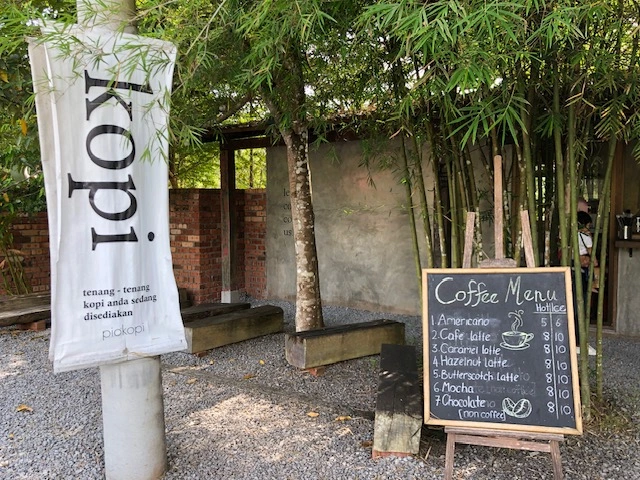 kopi
tenang - tenang
kopi anda sedang
disediakan
piakopi
Coffee Menu
Hot Ice
1. Americano 5 6
2. Cafe latte 8 10
3. Caramel latte 8 10
4. Hazelnut latte 8 10
5. Butterscotch latte 8 10
6. Mocha 8 10
7 Chocolate 8 10
[non coffee]